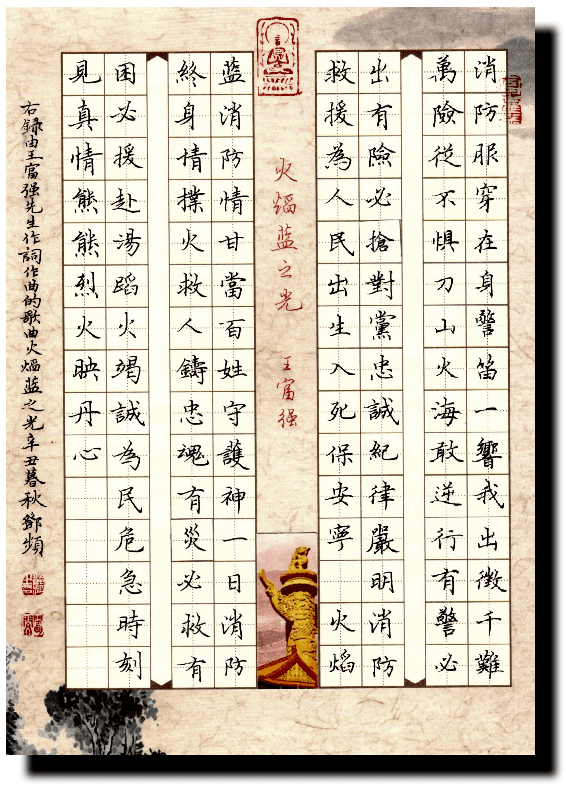 消防服穿在身警笛一響我出徵千難
萬險從不惧刀山火海敢逆行有警必
出有險必搶對黨忠誠紀律嚴明消防
救援為人民出生入死保安寧 火焰
火焰蓝之光 王富强
蓝消防情甘當百姓守護神一日消防
終身情撲火救人鑄忠魂有災必救有
困必援赴湯蹈火竭誠為民危急時刻
見真情熊熊烈火映丹心
右録由王富强先生作詞作曲的歌曲火焰蓝之光辛丑暮秋鄧頻